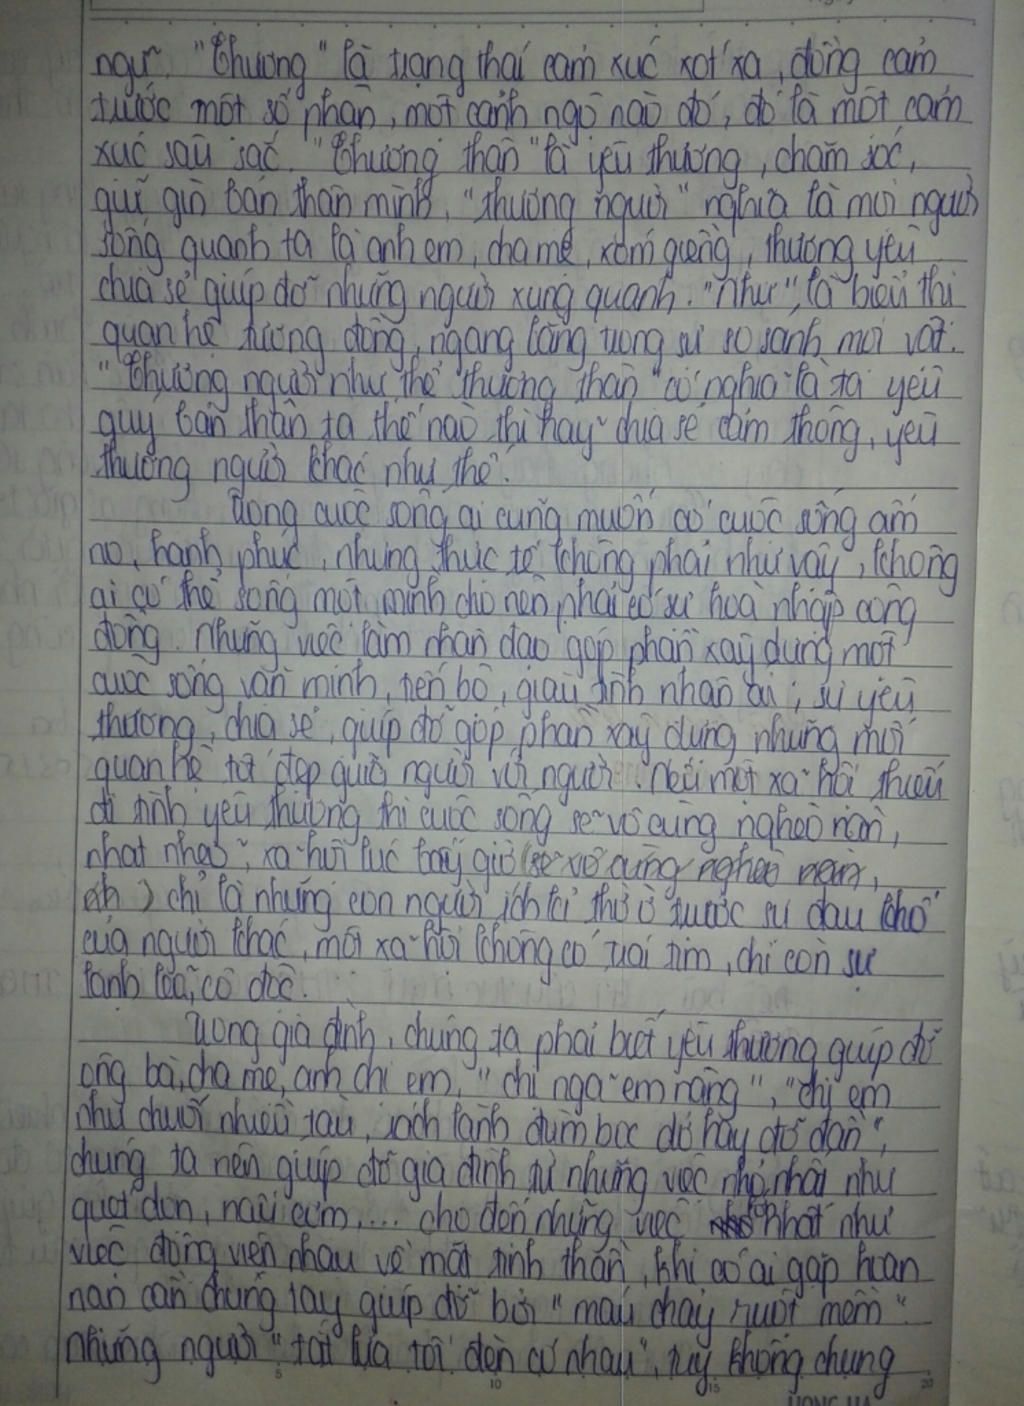 ngữ. "Thương" là trạng thái cảm xúc xót xa, đồng cảm
trước một số phận, một cảnh ngộ nào đó, đó là một cảm
xúc sâu sắc. "Thương thân" là yêu thương, chăm sóc,
giữ gìn bản thân mình, "thương người" nghĩa là mọi người
sống quanh ta là anh em, cha mẹ, xóm giềng, thương yêu
chia sẻ giúp đỡ những người xung quanh. "Như", là biểu thị
quan hệ tương đồng, ngang bằng trong sự so sánh mọi vật.
"Thương người như thể thương thân" có nghĩa là ta yêu
quý bản thân ta thế nào thì hãy chia sẻ cảm thông, yêu
thương người khác như thế.
Trong cuộc sống ai cũng muốn có cuộc sống ấm
no, hạnh phúc, nhưng thực tế không phải như vậy, không
ai có thể sống một mình cho nên phải có sự hoà nhập cộng
đồng. Những việc làm nhân đạo góp phần xây dựng một
cuộc sống văn minh, tiến bộ, giàu tình nhân ái; sự yêu
thương, chia sẻ, giúp đỡ góp phần xây dựng những mối
quan hệ tốt đẹp giữa người với người. Nếu một xã hội thiếu
đi tình yêu thương thì cuộc sống sẽ vô cùng nghèo nàn,
nhạt nhẽo, xã hội lúc bấy giờ (sẽ vô cùng nghèo nàn,
nh) chỉ là những con người ích kỉ thờ ơ trước sự đau khổ
của người khác, một xã hội không có trái tim, chỉ còn sự
lạnh lẽo, cô độc.
Trong gia đình, chúng ta phải biết yêu thương giúp đỡ
ông bà, cha mẹ, anh chị em, "chị ngã em nâng", "chị em
như chuối nhiều tàu, tách lành đùm bọc đó hãy đỡ đần",
chúng ta nên giúp đỡ gia đình từ những việc nhỏ nhặt như
quét dọn, nấu cơm,... cho đến những việc nhất như
việc động viên nhau về mặt tinh thần, khi có ai gặp hoạn
nạn cần chung tay giúp đỡ bởi "máu chảy ruột mềm"
những người "tắt lửa tối đèn có nhau", tuy không chung